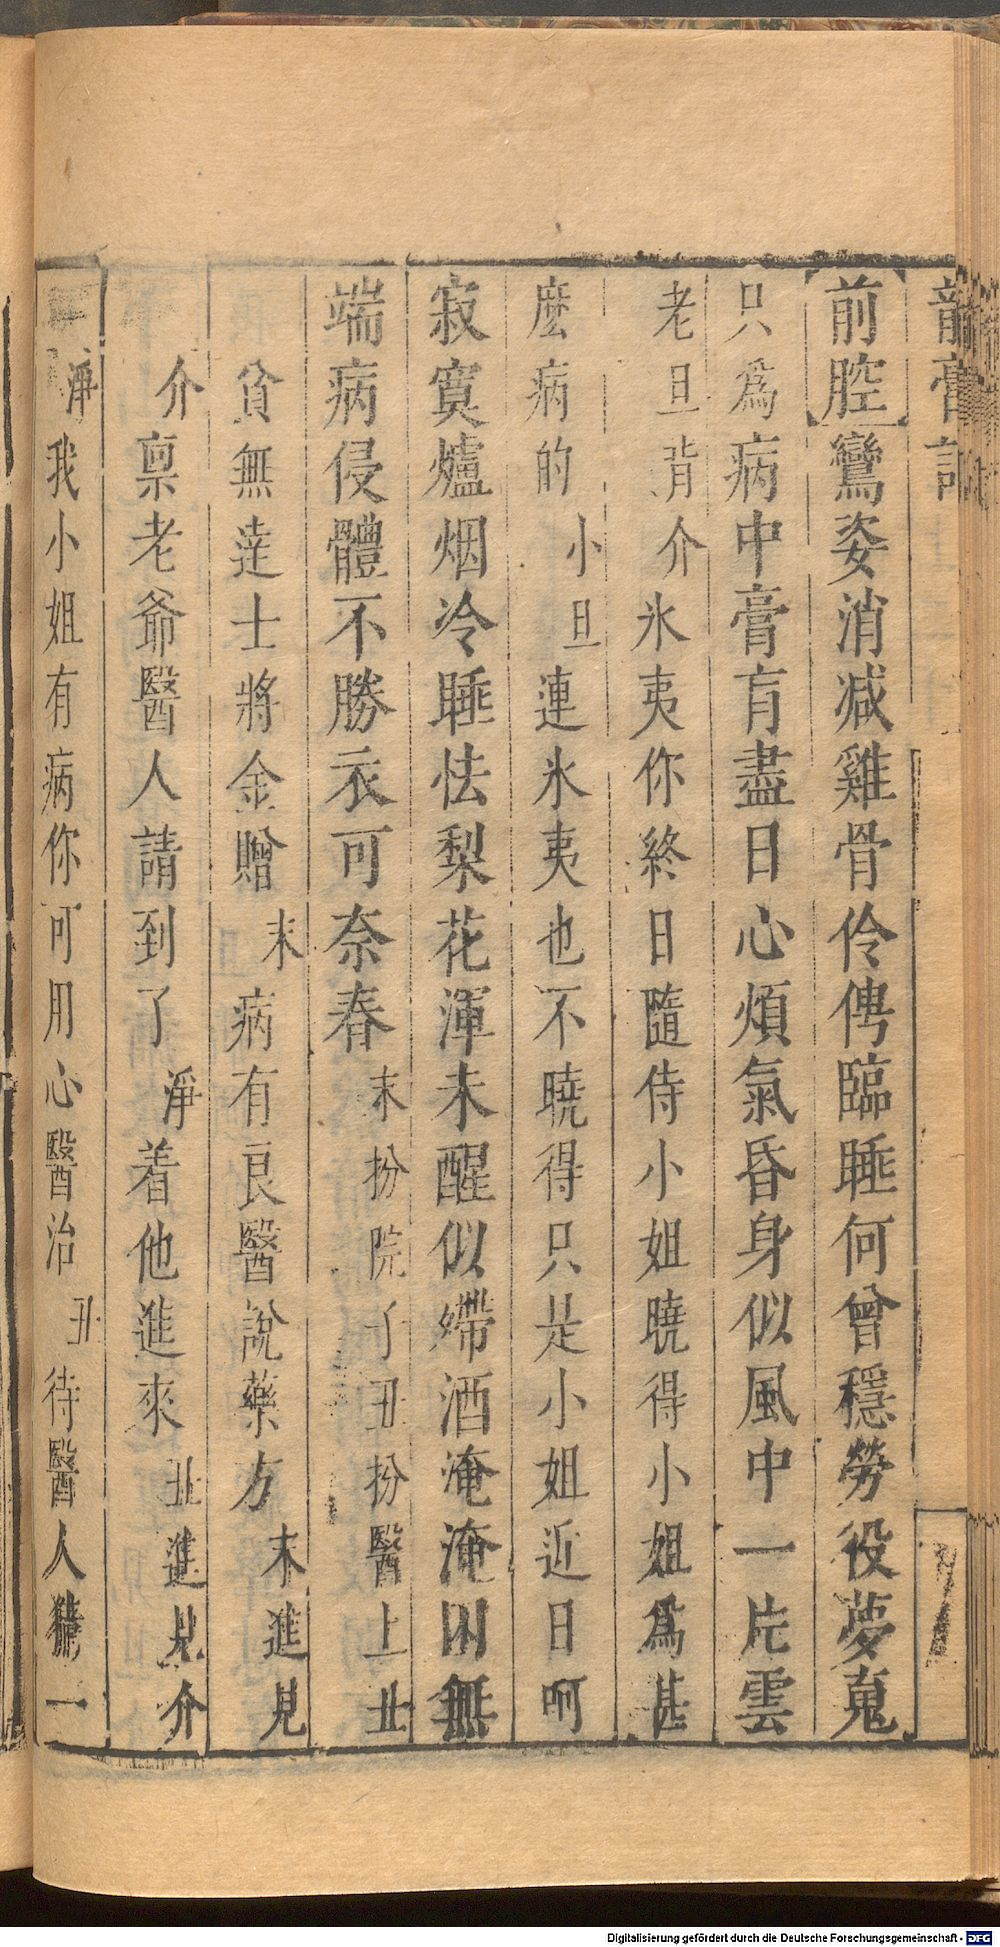 龍膏記
前腔鸞姿消減雞骨伶俜臨睡何曾穩勞役夢䰟
只爲病中膏肓盡日心煩氣昏身似風中一片雲
老旦背介氷夷你終日隨侍小姐曉得小姐爲甚
麽病的小旦連氷夷也不曉得只是小姐近日呵
寂寞爐烟冷睡怯梨花渾未醒似殢酒淹淹困無
端病侵體不勝衣可奈春末扮院子丑扮醫上丑
貧無達士將金贈末病有良醫說藥方末進見
介禀老爺醫人請到了淨着他進來丑進見介
淨我小姐有病你可用心醫治丑待醫人猜一
Digitalisierung gefördert durch die Deutsche Forschungsgemeinschaft - DFG